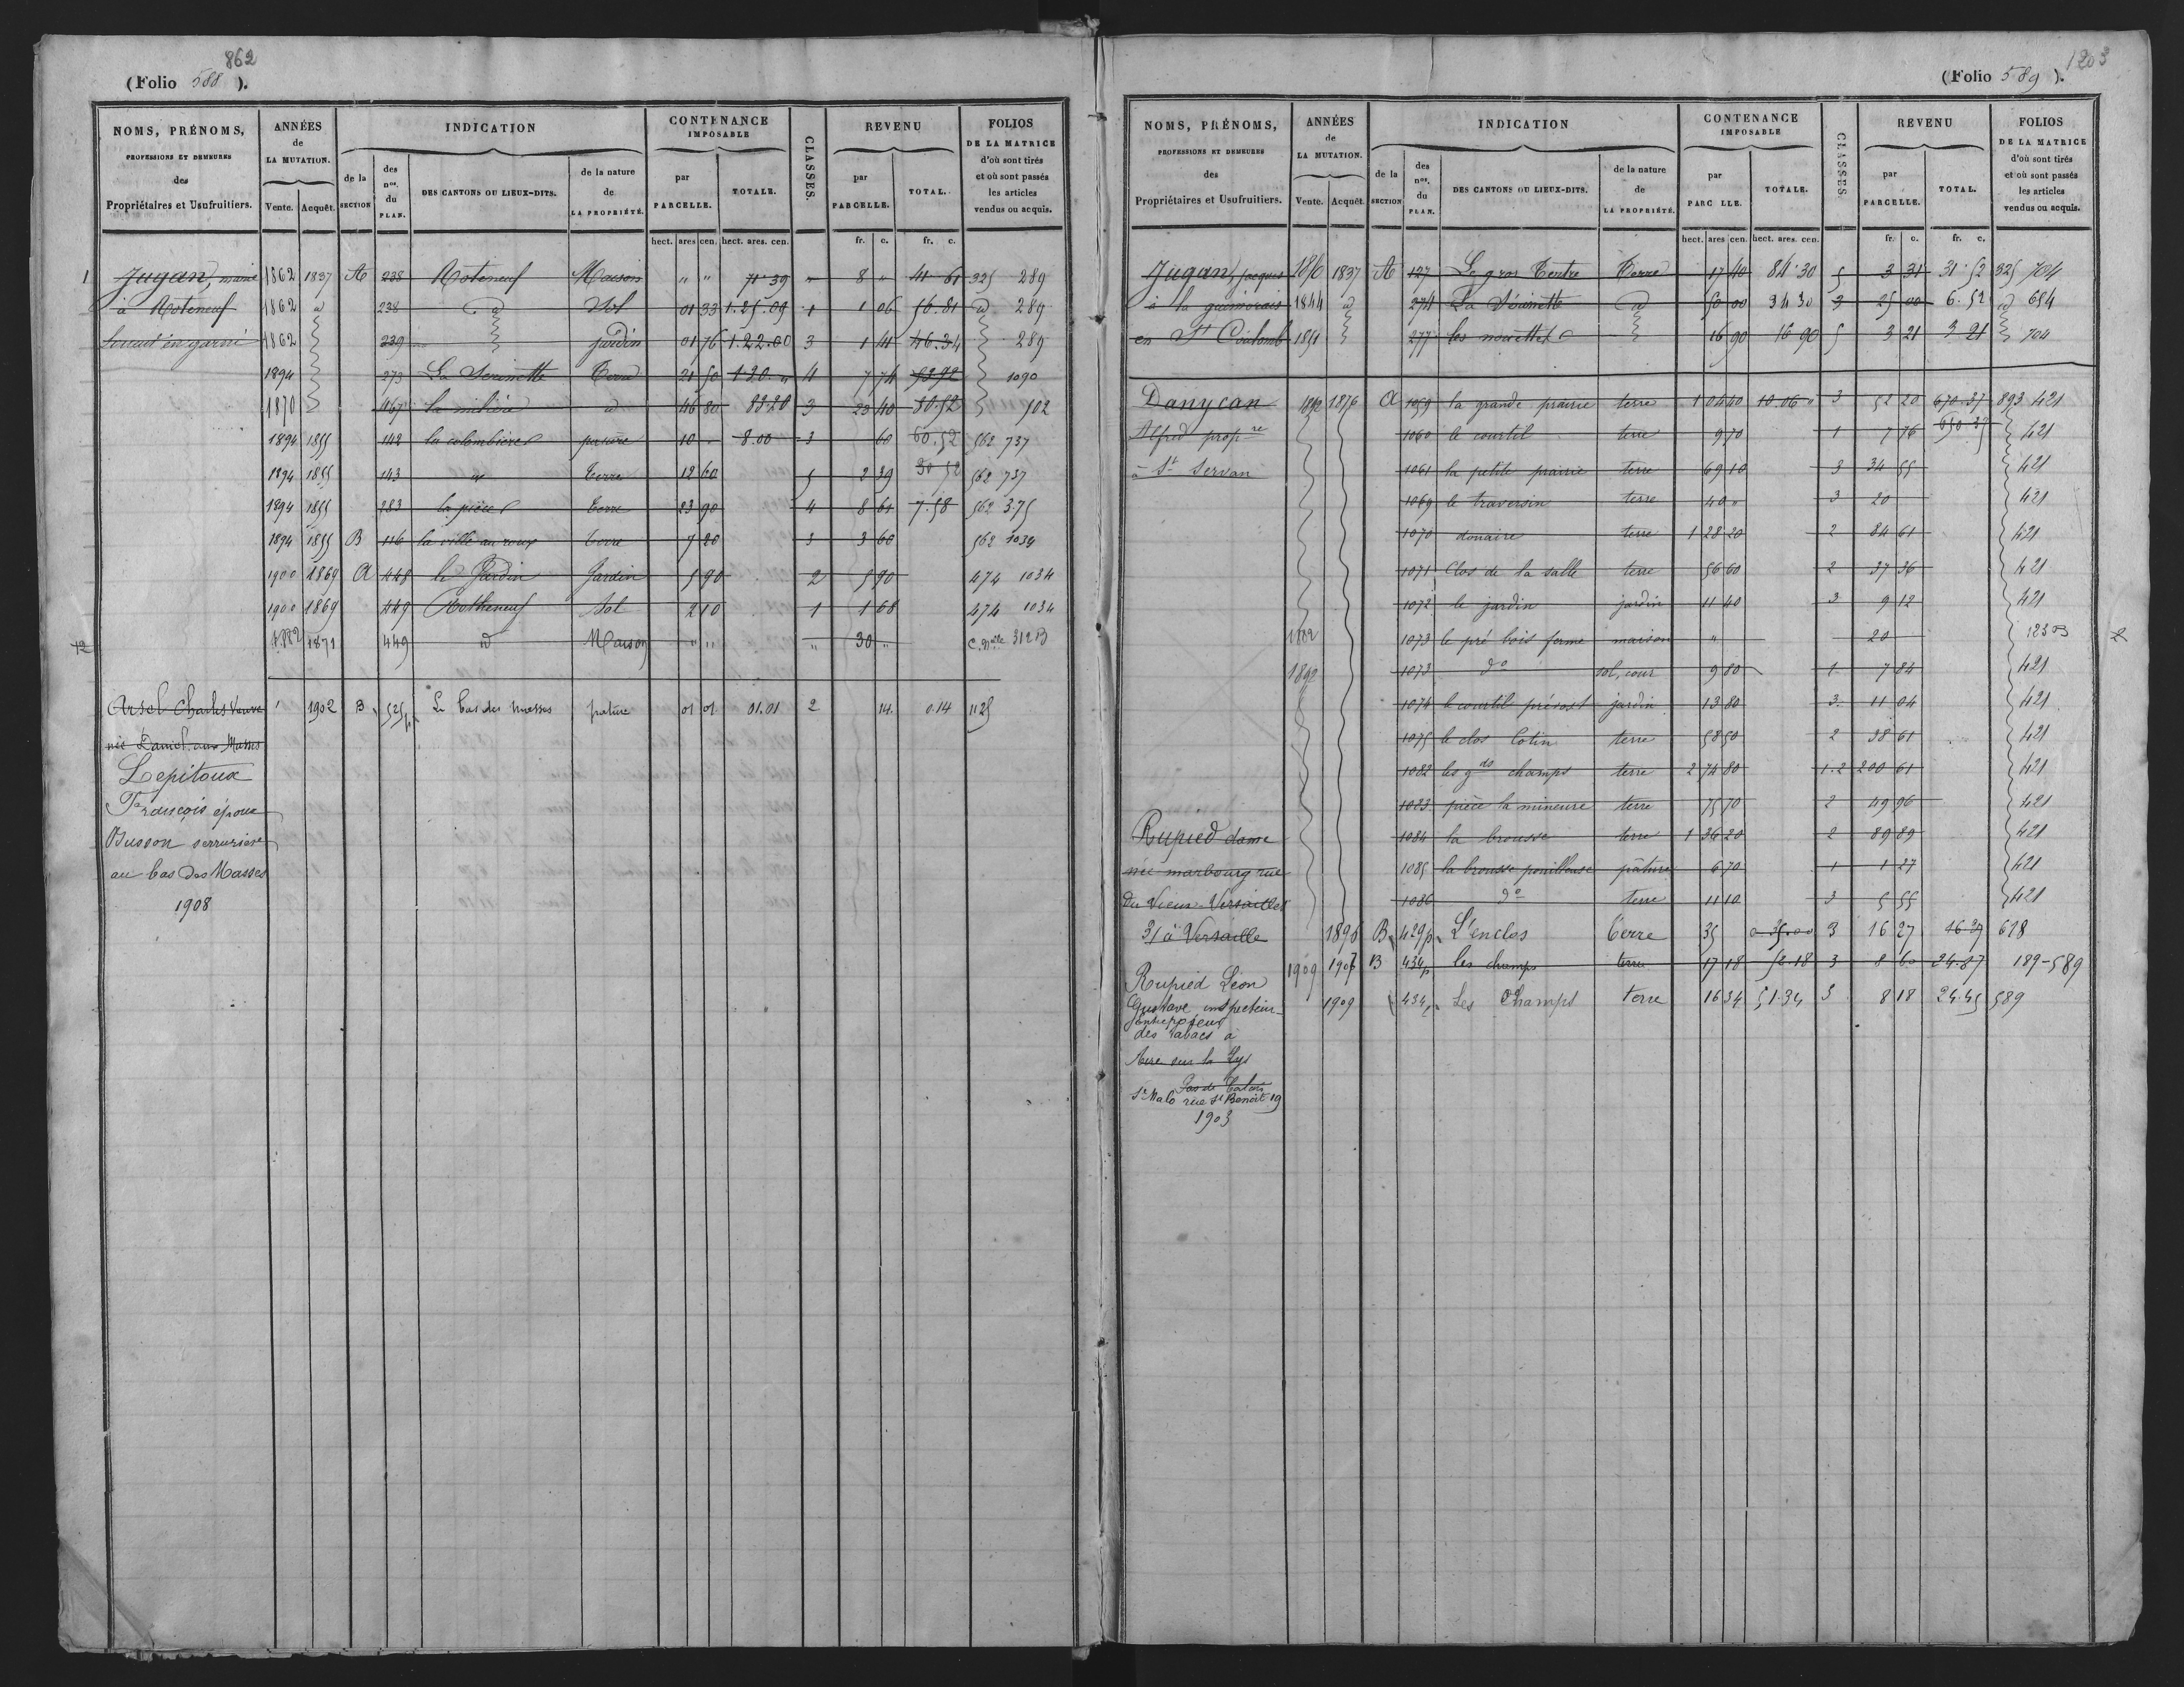 862
(Folio 588 ).
NOMS, PRÉNOMS,
PROFESSIONS ET DEMEURES
des
Propriétaires et Usufruitiers.
ANNÉES
de
LA MUTATION.
Vente. Acquêt.
INDICATION
de la
SECTION
des
nos.
du
PLAN.
DES CANTONS OU LIEUX-DITS.
de la nature
de
LA PROPRIÉTÉ.
CONTENANCE
IMPOSABLE
par
PARCELLE.
TOTALE.
CLASSES.
REVENU
par
PARCELLE.
TOTAL.
FOLIOS
DE LA MATRICE
d'où sont tirés
et où sont passés
les articles
vendus ou acquis.
hect. ares cen. hect. ares. cen. fr. c. fr. c.
1 Jugan, 1862 1837 A 238 Roteneuf Maison " " 71 39 " 8 " 41 61 325 289
à Roteneuf 1862 d 238 d Sol 01 33 1.25.09 1 1 06 56.81 d 289
1862 239 jardin 01 76 1.22.00 3 1 41 46.34 289
1894 273 Terre 21 50 1.20. " 4 7 74 1090
1870 467 la milière d 46 80 83.20 3 23 40 30.52 102
1894 1855 142 la colombière 10 " 8.00 3 60 60.52 562 737
1894 1855 143 d Terre 12 60 5 2 39 30 52 562 737
1894 1855 283 la pièce Terre 23 90 4 8 61 7.58 562 375
1894 1855 B 116 la ville au roux terre 7 20 3 3 60 562 1034
1900 1869 A 448 le Jardin Jardin 5 90 2 5 90 474 1034
1900 1869 449 Rotheneuf Sol 2 10 1 1 68 474 1034
1882 1871 449 d Maison " " " 30 " 312 B
Arsel Charles Veuve 1902 B 525p Le bas des masses pature 01 01 01.01 2 14. 0.14 1125
née Daniel aux Masses
Lepitoux
François époux
Busson serrurier
au bas des Masses
1908
1203
(Folio 589 ).
NOMS, PRÉNOMS,
PROFESSIONS ET DEMEURES
des
Propriétaires et Usufruitiers.
ANNÉES
de
LA MUTATION.
Vente. Acquêt.
INDICATION
de la
SECTION
des
nos.
du
PLAN.
DES CANTONS OU LIEUX-DITS.
de la nature
de
LA PROPRIÉTÉ.
CONTENANCE
IMPOSABLE
par
PARC LLE.
TOTALE.
CLASSES.
REVENU
par
PARCELLE.
TOTAL.
FOLIOS
DE LA MATRICE
d'où sont tirés
et où sont passés
les articles
vendus ou acquis.
hect. ares cen. hect. ares. cen. fr. c. fr. c.
Jugan, Jacques 1837 A 127 Le gros Tertre Terre 17 40 84.30 5 3 31 31.52 325 704
à la guimorais 1844 d 274 d 50 00 34 30 3 25 00 6.52 d 654
en St Coulomb 1851 277 16 90 16 90 5 3 21 3 21 704
Danycan 1892 1876 A 1059 la grande prairie terre 1 04 40 10.06 " 3 52 20 670.37 893 421
Alfred propre 1060 le courtil terre 9 70 1 7 76 421
à St Servan 1061 la petite prairie terre 69 10 3 34 55 421
1069 le traversin terre 40 " 3 20 421
1070 douaire terre 1 28 20 2 84 61 421
1071 Clos de la salle terre 56 60 2 37 36 421
1072 le jardin jardin 11 40 3 9 12 421
1073 le pré bois ferme maison " 20
1892 1073 do sol, cour 9 80 1 7 84 421
1074 le courtil prévost jardin 13 80 3 11 04 421
1075 le clos Cotin terre 58 50 2 38 61 421
1082 les gds champs terre 2 74 80 1.2 200 61 421
1083 pièce la mineure terre 75 70 2 49 96 421
Rupied dame 1084 la brousse terre 1 36 20 2 89 89 421
née marbourg rue 1085 la brousse pouilleuse pâture 6 70 1 1 27 421
du Vieux Versailles 1086 do terre 11 10 3 5 55 421
31 à Versaille 1896 B 429p L'enclos terre 35 0.35.00 3 16 27 16 27 628
1909 1907 B 434p les champs terre 17 18 52.18 3 8 60 24.87 189-589
Rupied Léon
Gustave inspecteur 1909 434p Les Champs terre 16 34 51.34 3 8 18 24.45 589
des Tabacs à
Aire sur la Lys
Pas de Calais
St Malo rue St Benoit 19
1903